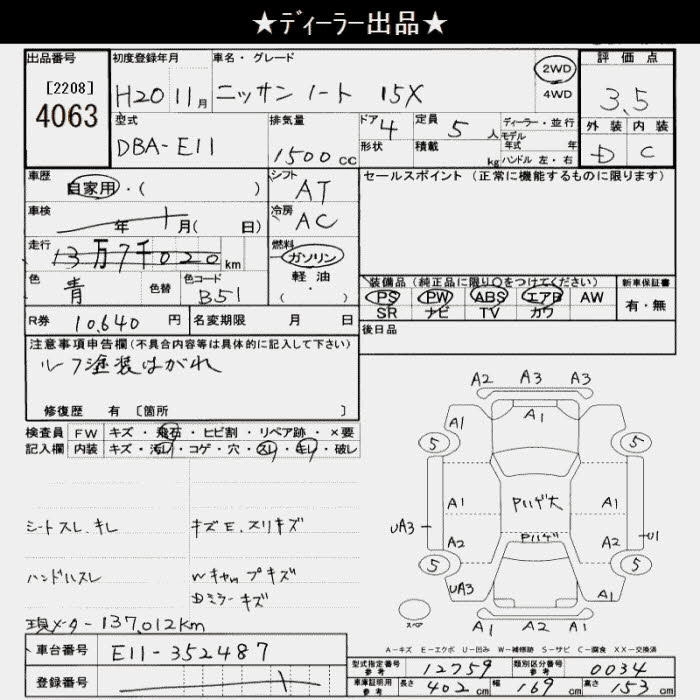 ★ディーラー出品★
出品番号
[2208]
4063
初度登録年月
H20 11月
車名・グレード
ニッサン ノート 15X
2WD
4WD
評価点
3.5
外装 内装
D C
型式
DBA-E11
排気量
1500cc
ドア 4
形状
定員 5人
積載 kg
ディーラー・並行
モデル年式 年
ハンドル 左・右
車歴
自家用・( )
シフト
AT
セールスポイント (正常に機能するものに限ります)
車検
年 月( 日)
冷房
AC
走行
13万7千020km
燃料
ガソリン
軽油
・( )
色
青
色替
色コード
B51
装備品 (純正品に限り○をつけてください)
PS PW ABS エアB AW
SR ナビ TV カワ
新車保証書
有・無
R券 10,640円
名変期限 月 日
後日品
注意事項申告欄(不具合内容等は具体的に記入して下さい)
ルーフ塗装はがれ
修復歴 有 [箇所 ]
検査員 FW キズ・飛石・ヒビ割・リペア跡・×要
記入欄 内装 キズ・汚レ・コゲ・穴・スレ・キレ・破レ
シートスレ、キレ
キズE、スリキズ
ハンドルスレ
Wキャップキズ
Dミラーキズ
現メーター137,012km
A2 A3 A3
A1 A1
5 5
A1 Pハゲ大 A1
UA3 A2 Pハゲ A2 U1
5 5
UA3 A1
スペア
A1 A2 A1
A-キズ E-エクボ U-凹み W-補修跡 S-サビ C-腐食 XX-交換済
車台番号 E11-352487
登録番号
型式指定番号 参考 12759
類別区分番号 参考 0034
車庫証明用 参考 長さ 402cm 幅 169cm 高さ 153cm